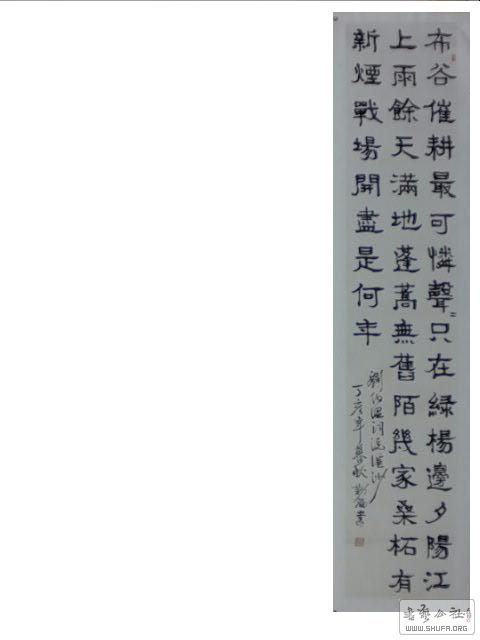 布谷催耕最可憐聲〻只在緑楊邊夕陽江
上雨餘天滿地蓬蒿無舊陌幾家桑柘有
新煙戰場開盡是何年
劉伯温詞浣溪沙
丁亥年暮秋書
书艺公社
WWW.SHUFA.ORG